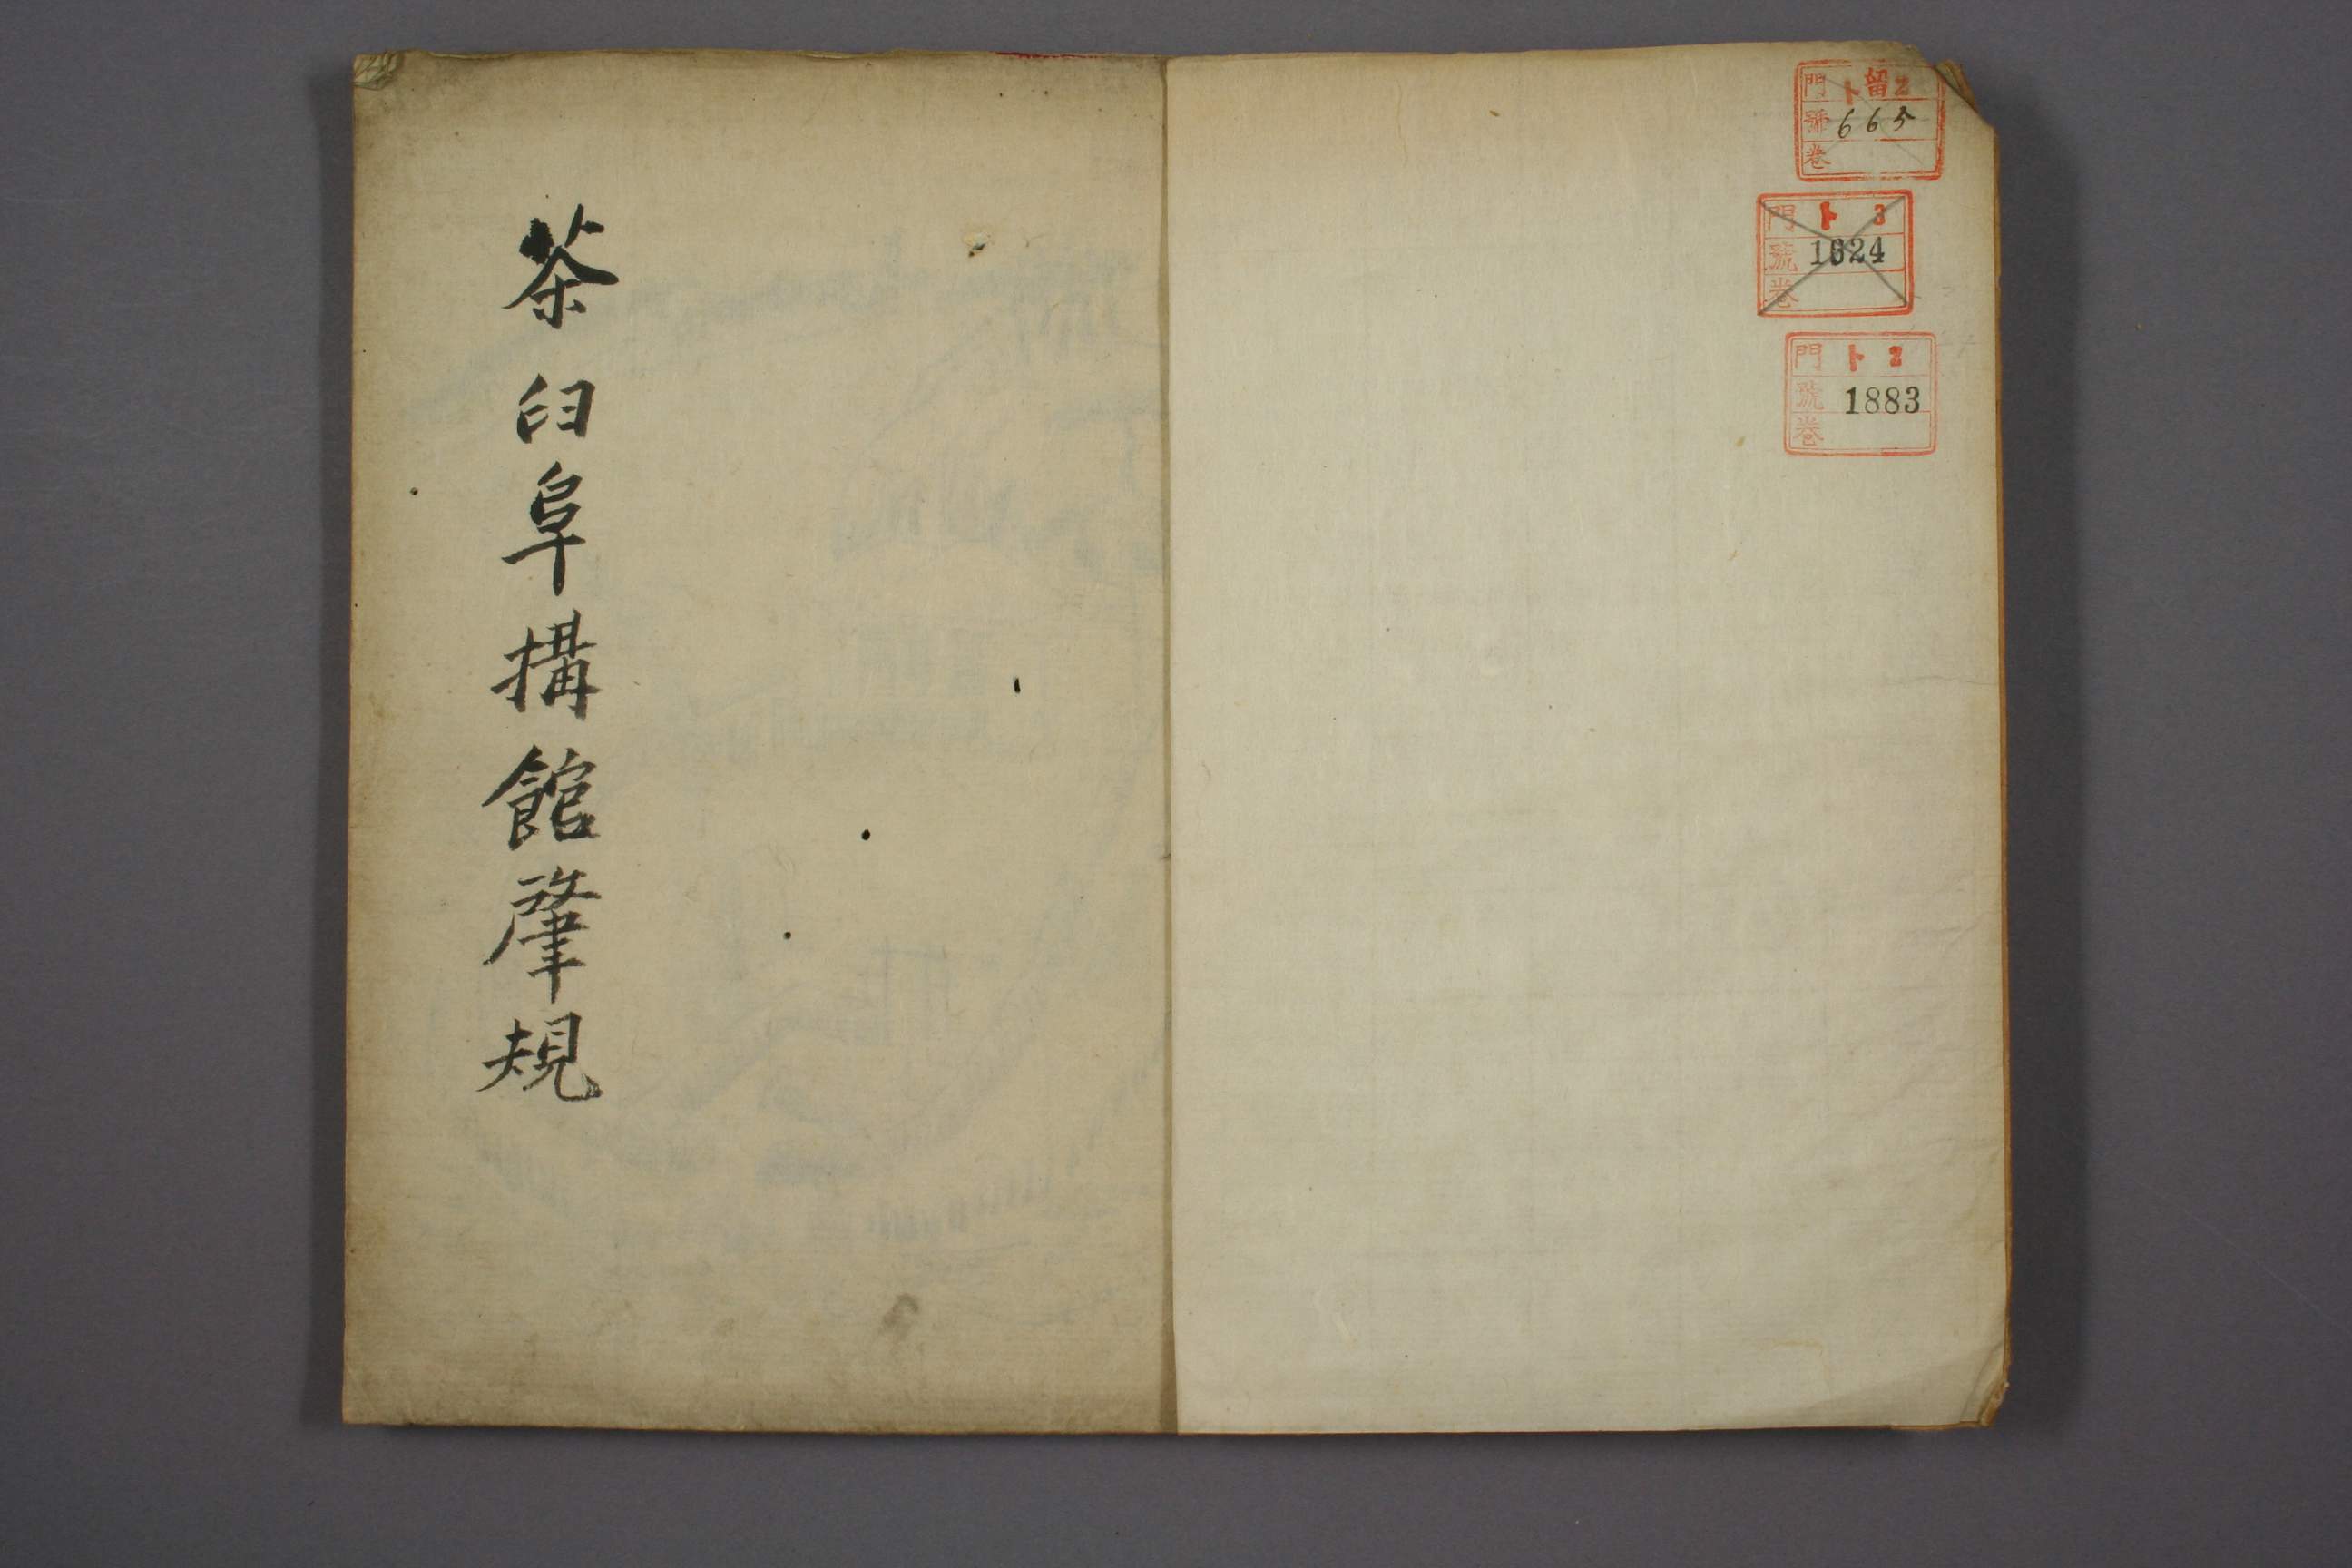 門 ト 留 2
號 665
卷
門 ト 3
號 1624
卷
門 ト 2
號 1883
卷
茶臼阜構館肇規